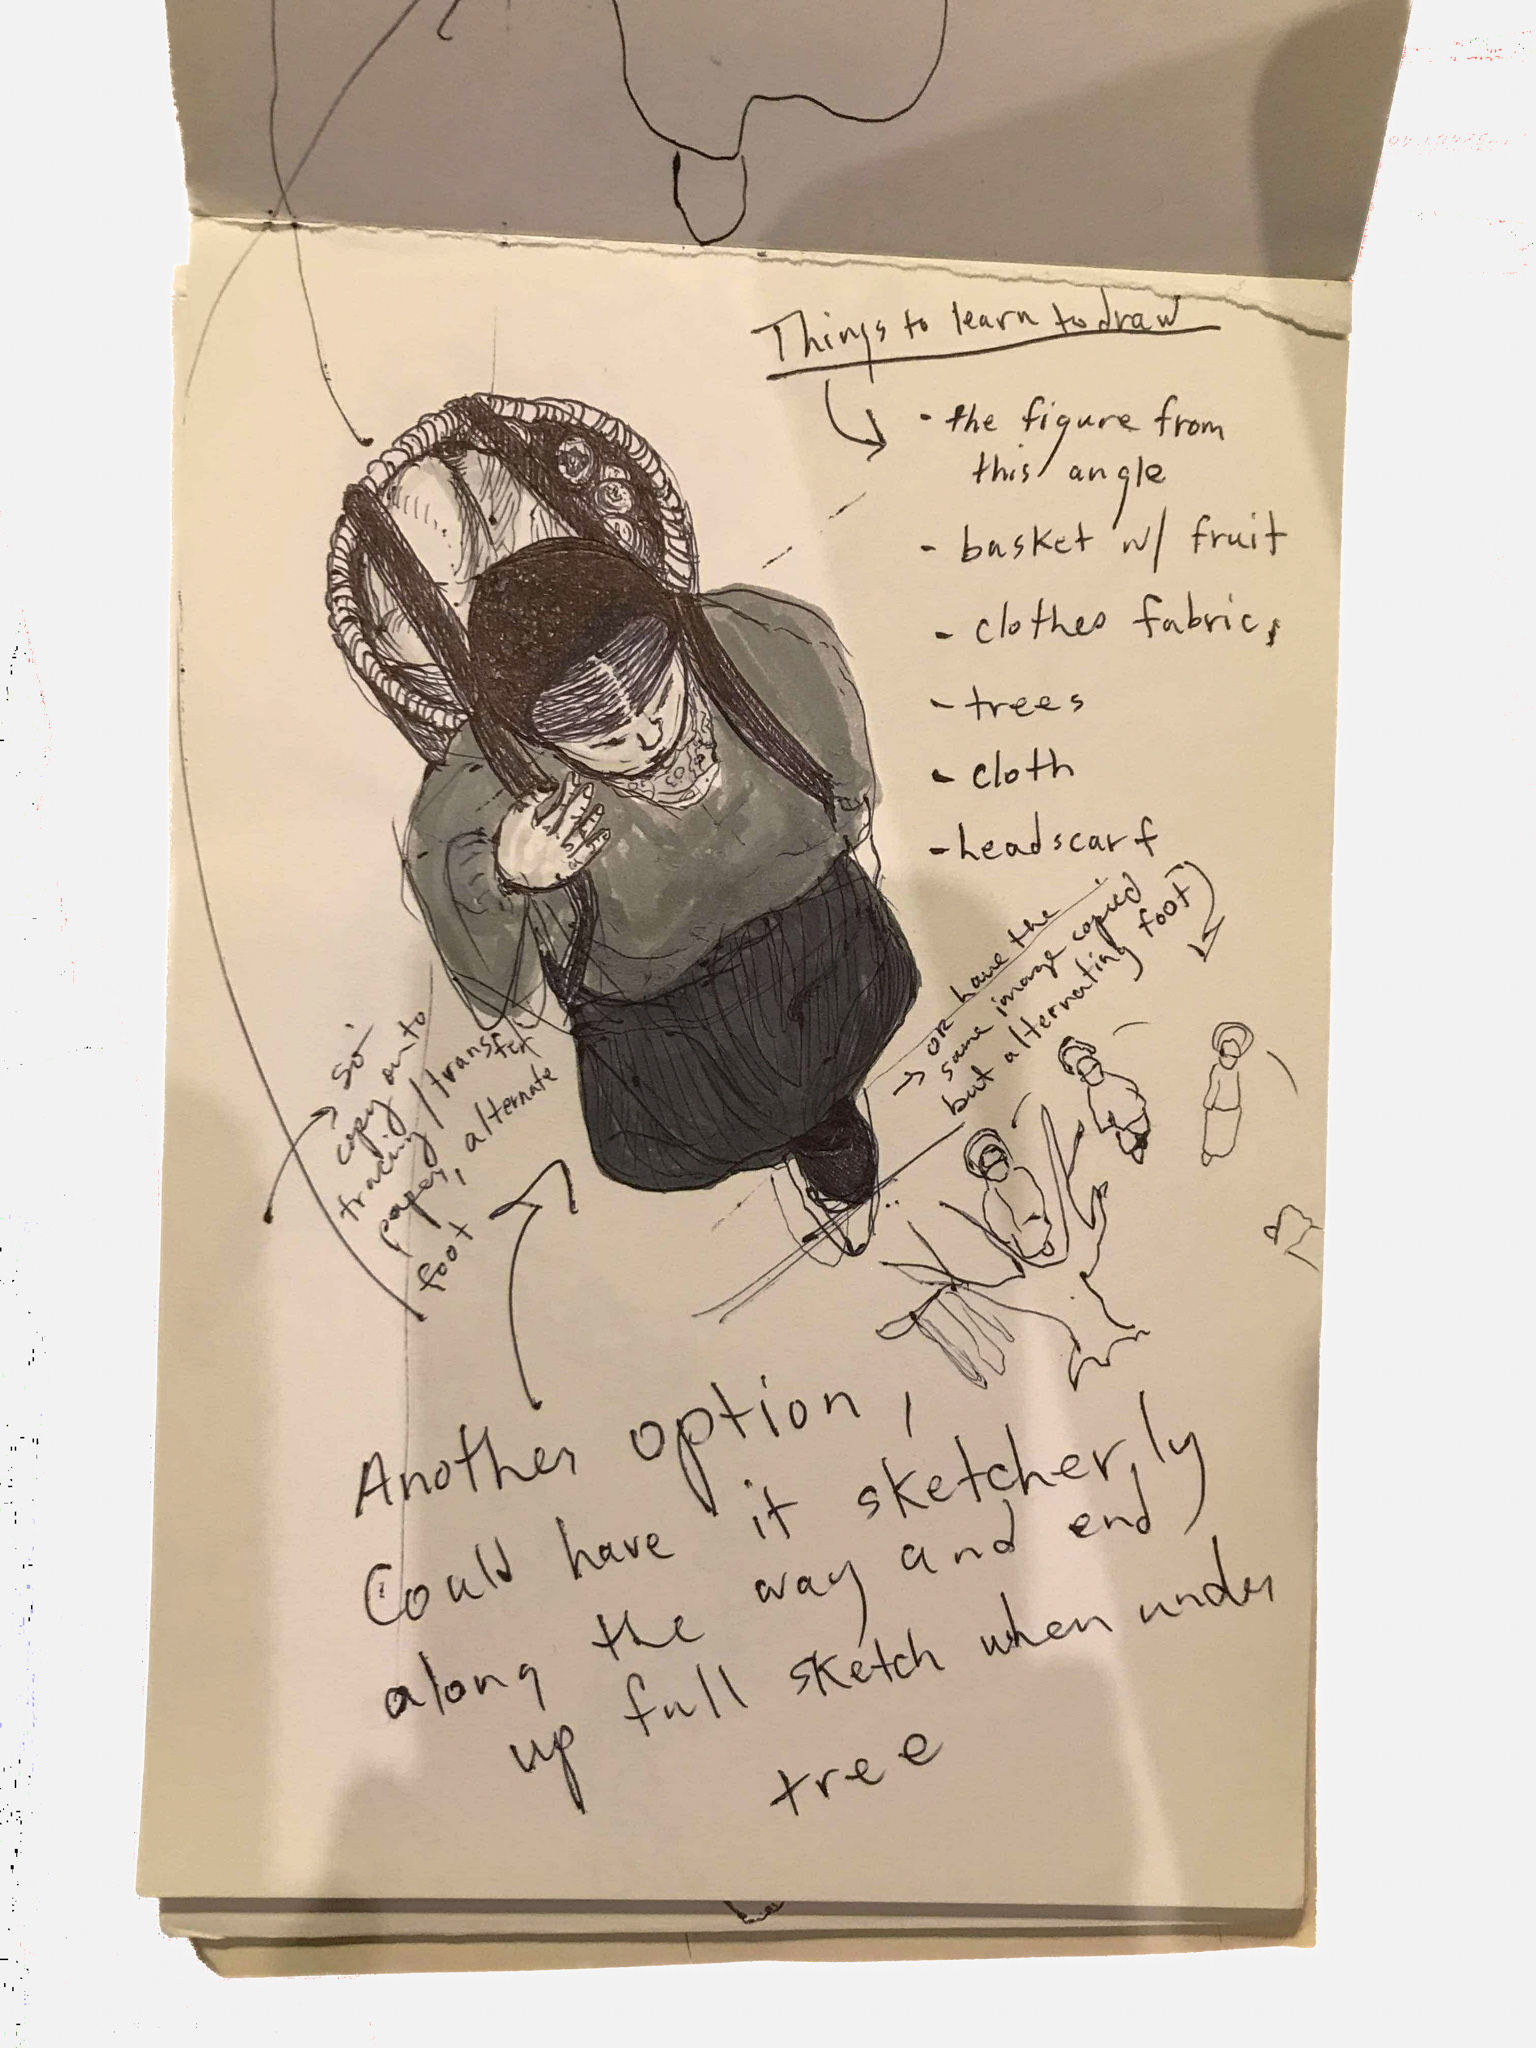 Things to learn to draw
- the figure from
this angle
- basket w/ fruit
- clothes fabric,
- trees
- cloth
- headscarf
→ or have the
same image copied
but alternating foot)
→ so
copy onto
tracing/transfer
paper, alternate
foot
Another option,
Could have it sketcherly
along the way and end
up full sketch when under
tree